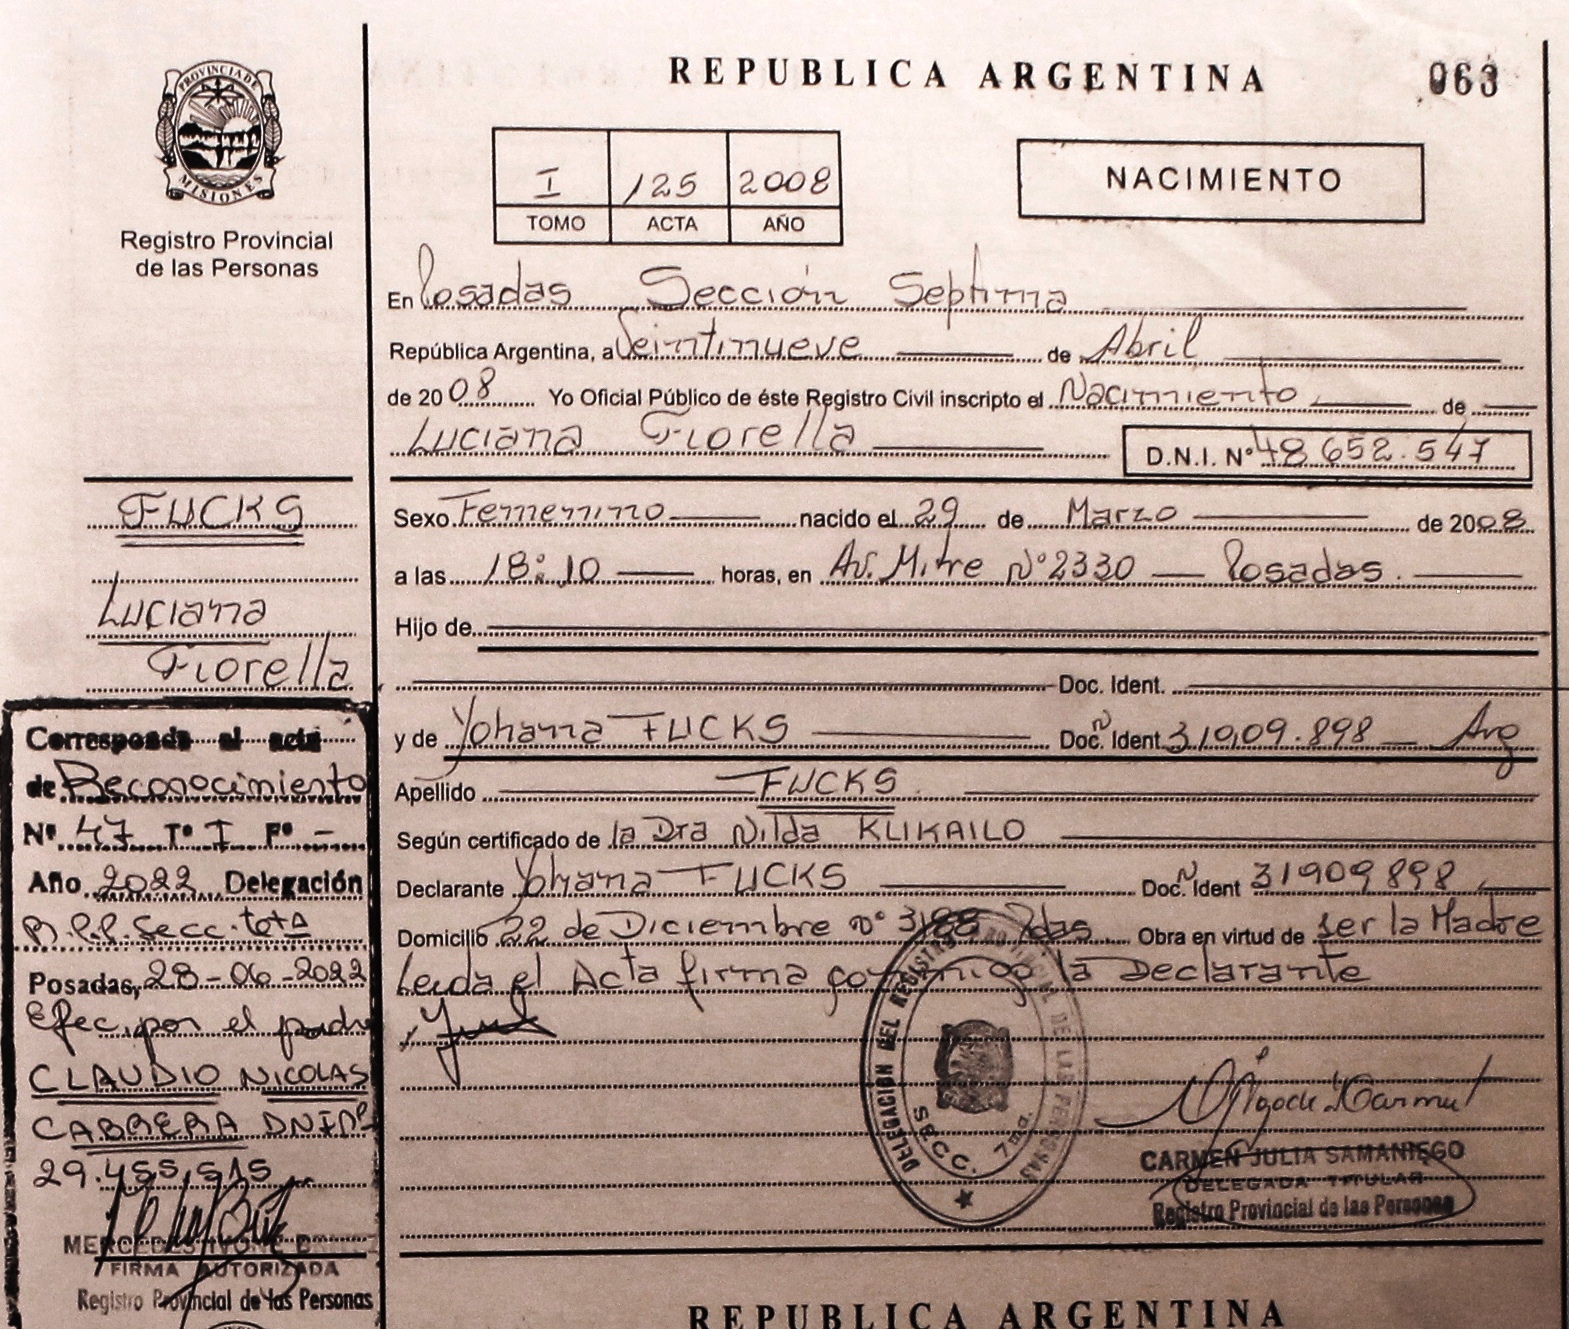 PROVINCIA DE
MISIONES
Registro Provincial
de las Personas
FUCKS
Luciana
Fiorella
Corresponde al acta
de Reconocimiento
Nº 47 Tº I Fº -
Año 2022 Delegación
R.P.P. Secc. 1ota
Posadas, 28-06-2022
Efec. por el padre
CLAUDIO NICOLAS
CABRERA DNI Nº
29.455.515
MERCEDES IVONE
FIRMA AUTORIZADA
Registro Provincial de las Personas
REPUBLICA ARGENTINA
063
I 125 2008
TOMO ACTA AÑO
NACIMIENTO
En Posadas Sección Septima
República Argentina, a Veintinueve de Abril
de 2008 Yo Oficial Público de éste Registro Civil inscripto el Nacimiento de
Luciana Fiorella D.N.I. Nº 48 652.547
Sexo Femenino nacido el 29 de Marzo de 2008
a las 18:10 horas, en Av. Mitre Nº 2330 Posadas.
Hijo de
Doc. Ident.
y de Yohana FUCKS Doc. Nº Ident 31909.898 Arg
Apellido FUCKS
Según certificado de la Dra Nilda KLIKAILO
Declarante Yohana FUCKS Doc. Nº Ident 31909898
Domicilio 22 de Diciembre nº 3188 Pdas Obra en virtud de ser la Madre
Leida el Acta firma conmigo la Declarante
DELEGACIÓN DEL REGISTRO PROVINCIAL DE LAS PERSONAS
SECC. 7ma.
CARMEN JULIA SAMANIEGO
DELEGADA TITULAR
Registro Provincial de las Personas
REPUBLICA ARGENTINA